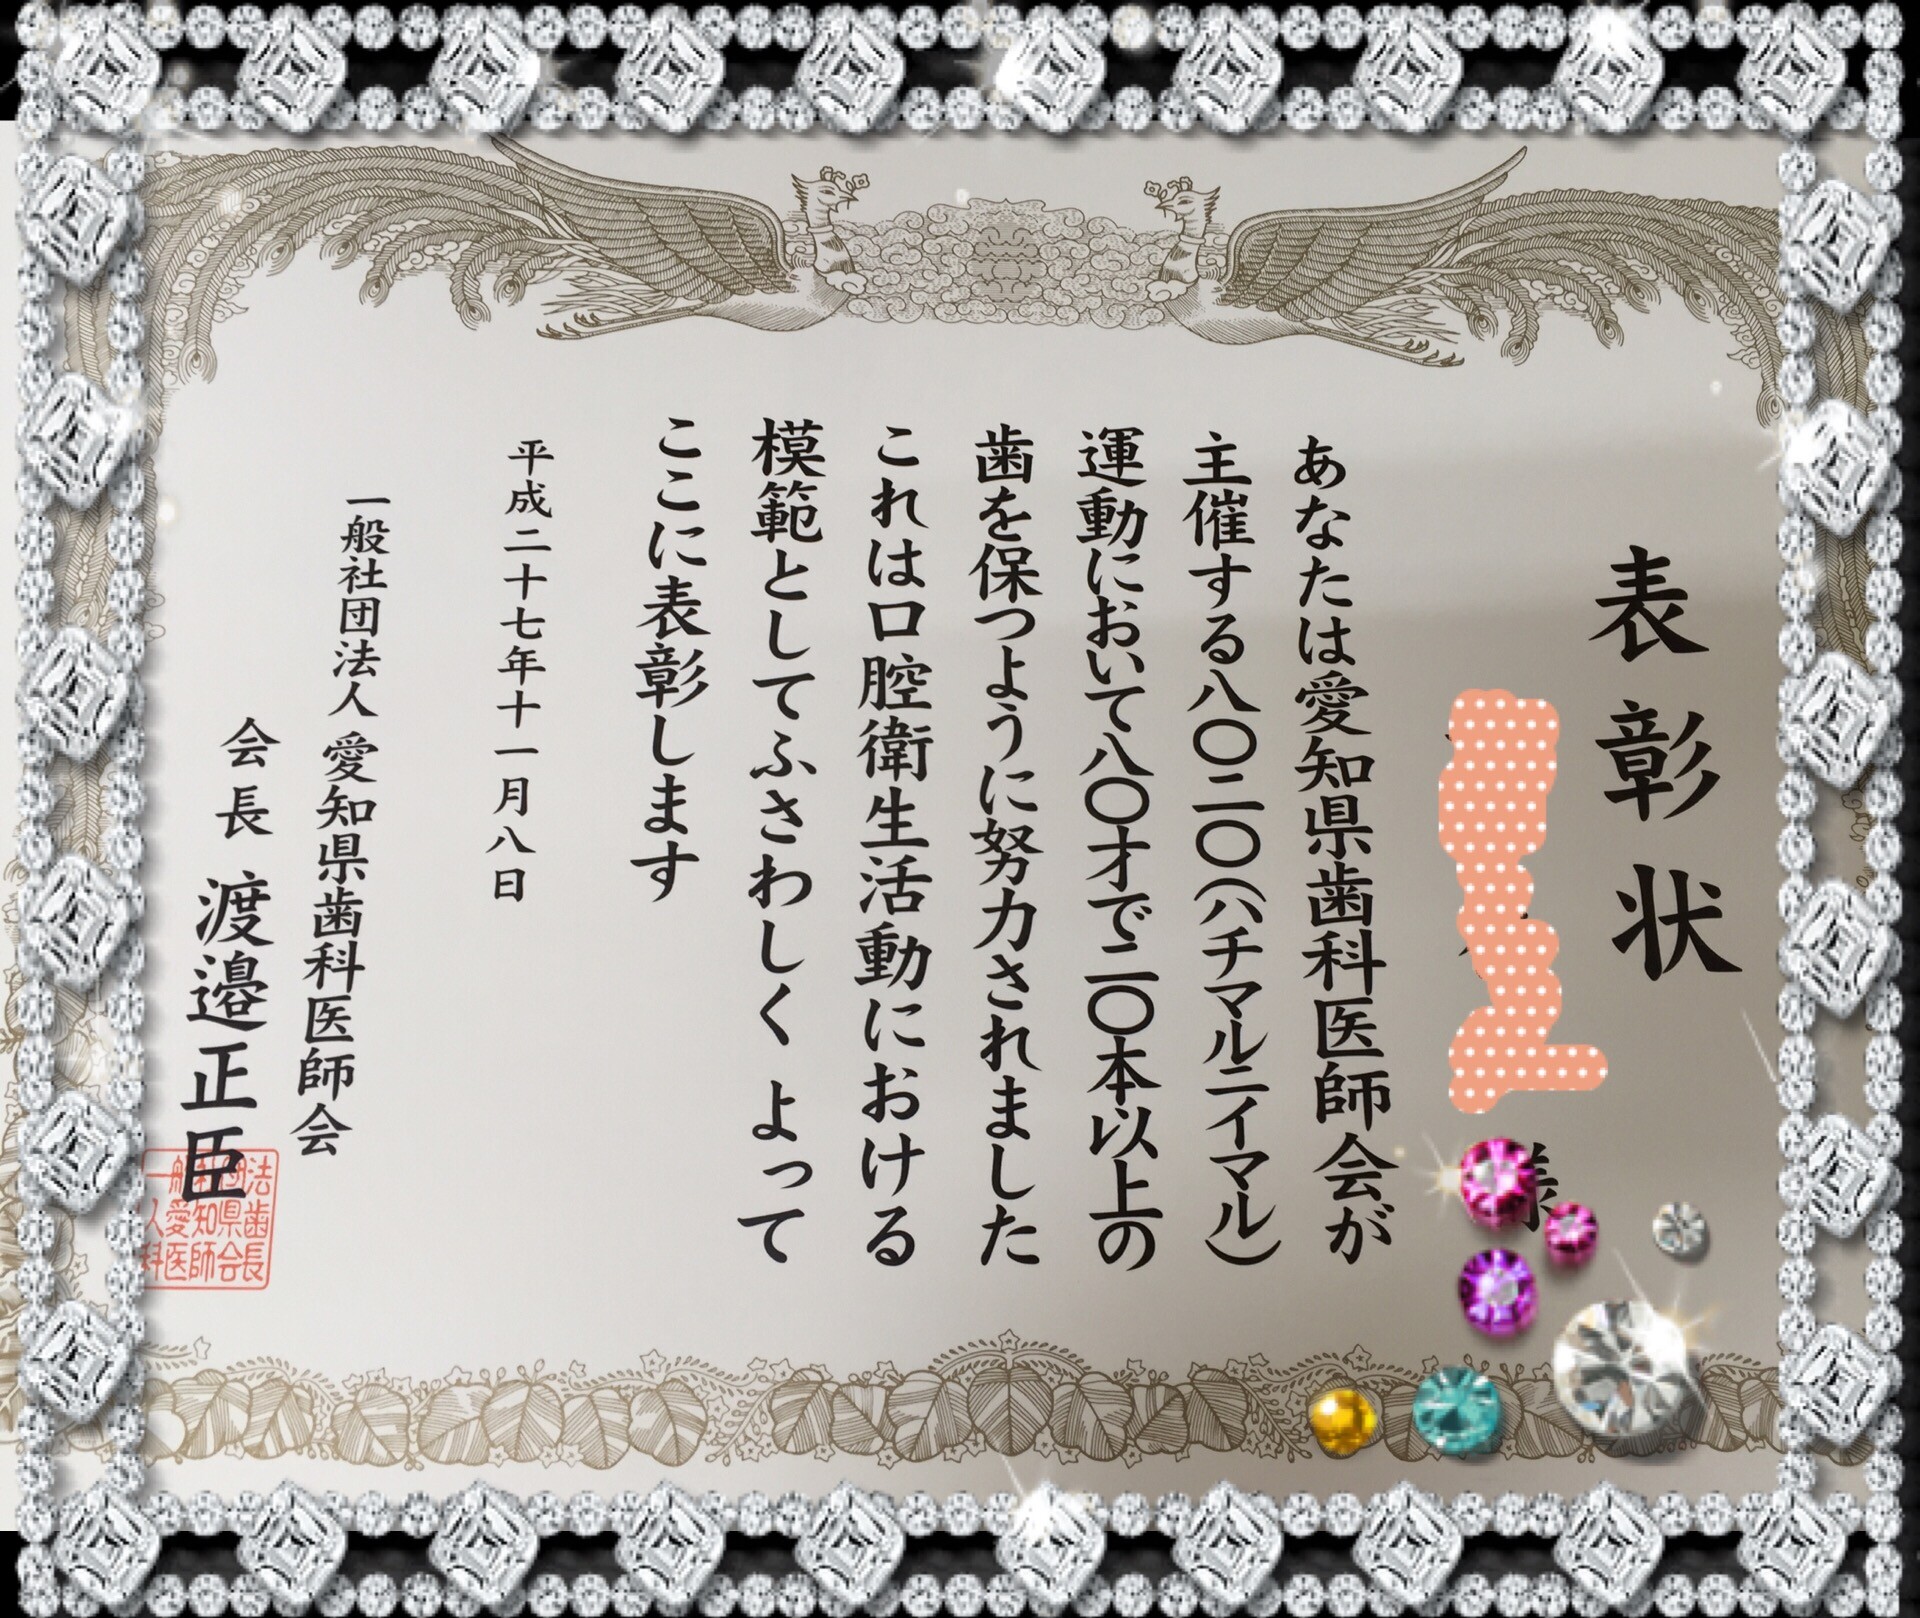 表彰状
様
あなたは愛知県歯科医師会が
主催する八〇二〇(ハチマルニイマル)
運動において八〇才で二〇本以上の
歯を保つように努力されました
これは口腔衛生活動における
模範としてふさわしく よって
ここに表彰します
平成二十七年十一月八日
一般社団法人 愛知県歯科医師会
会長 渡邉正臣